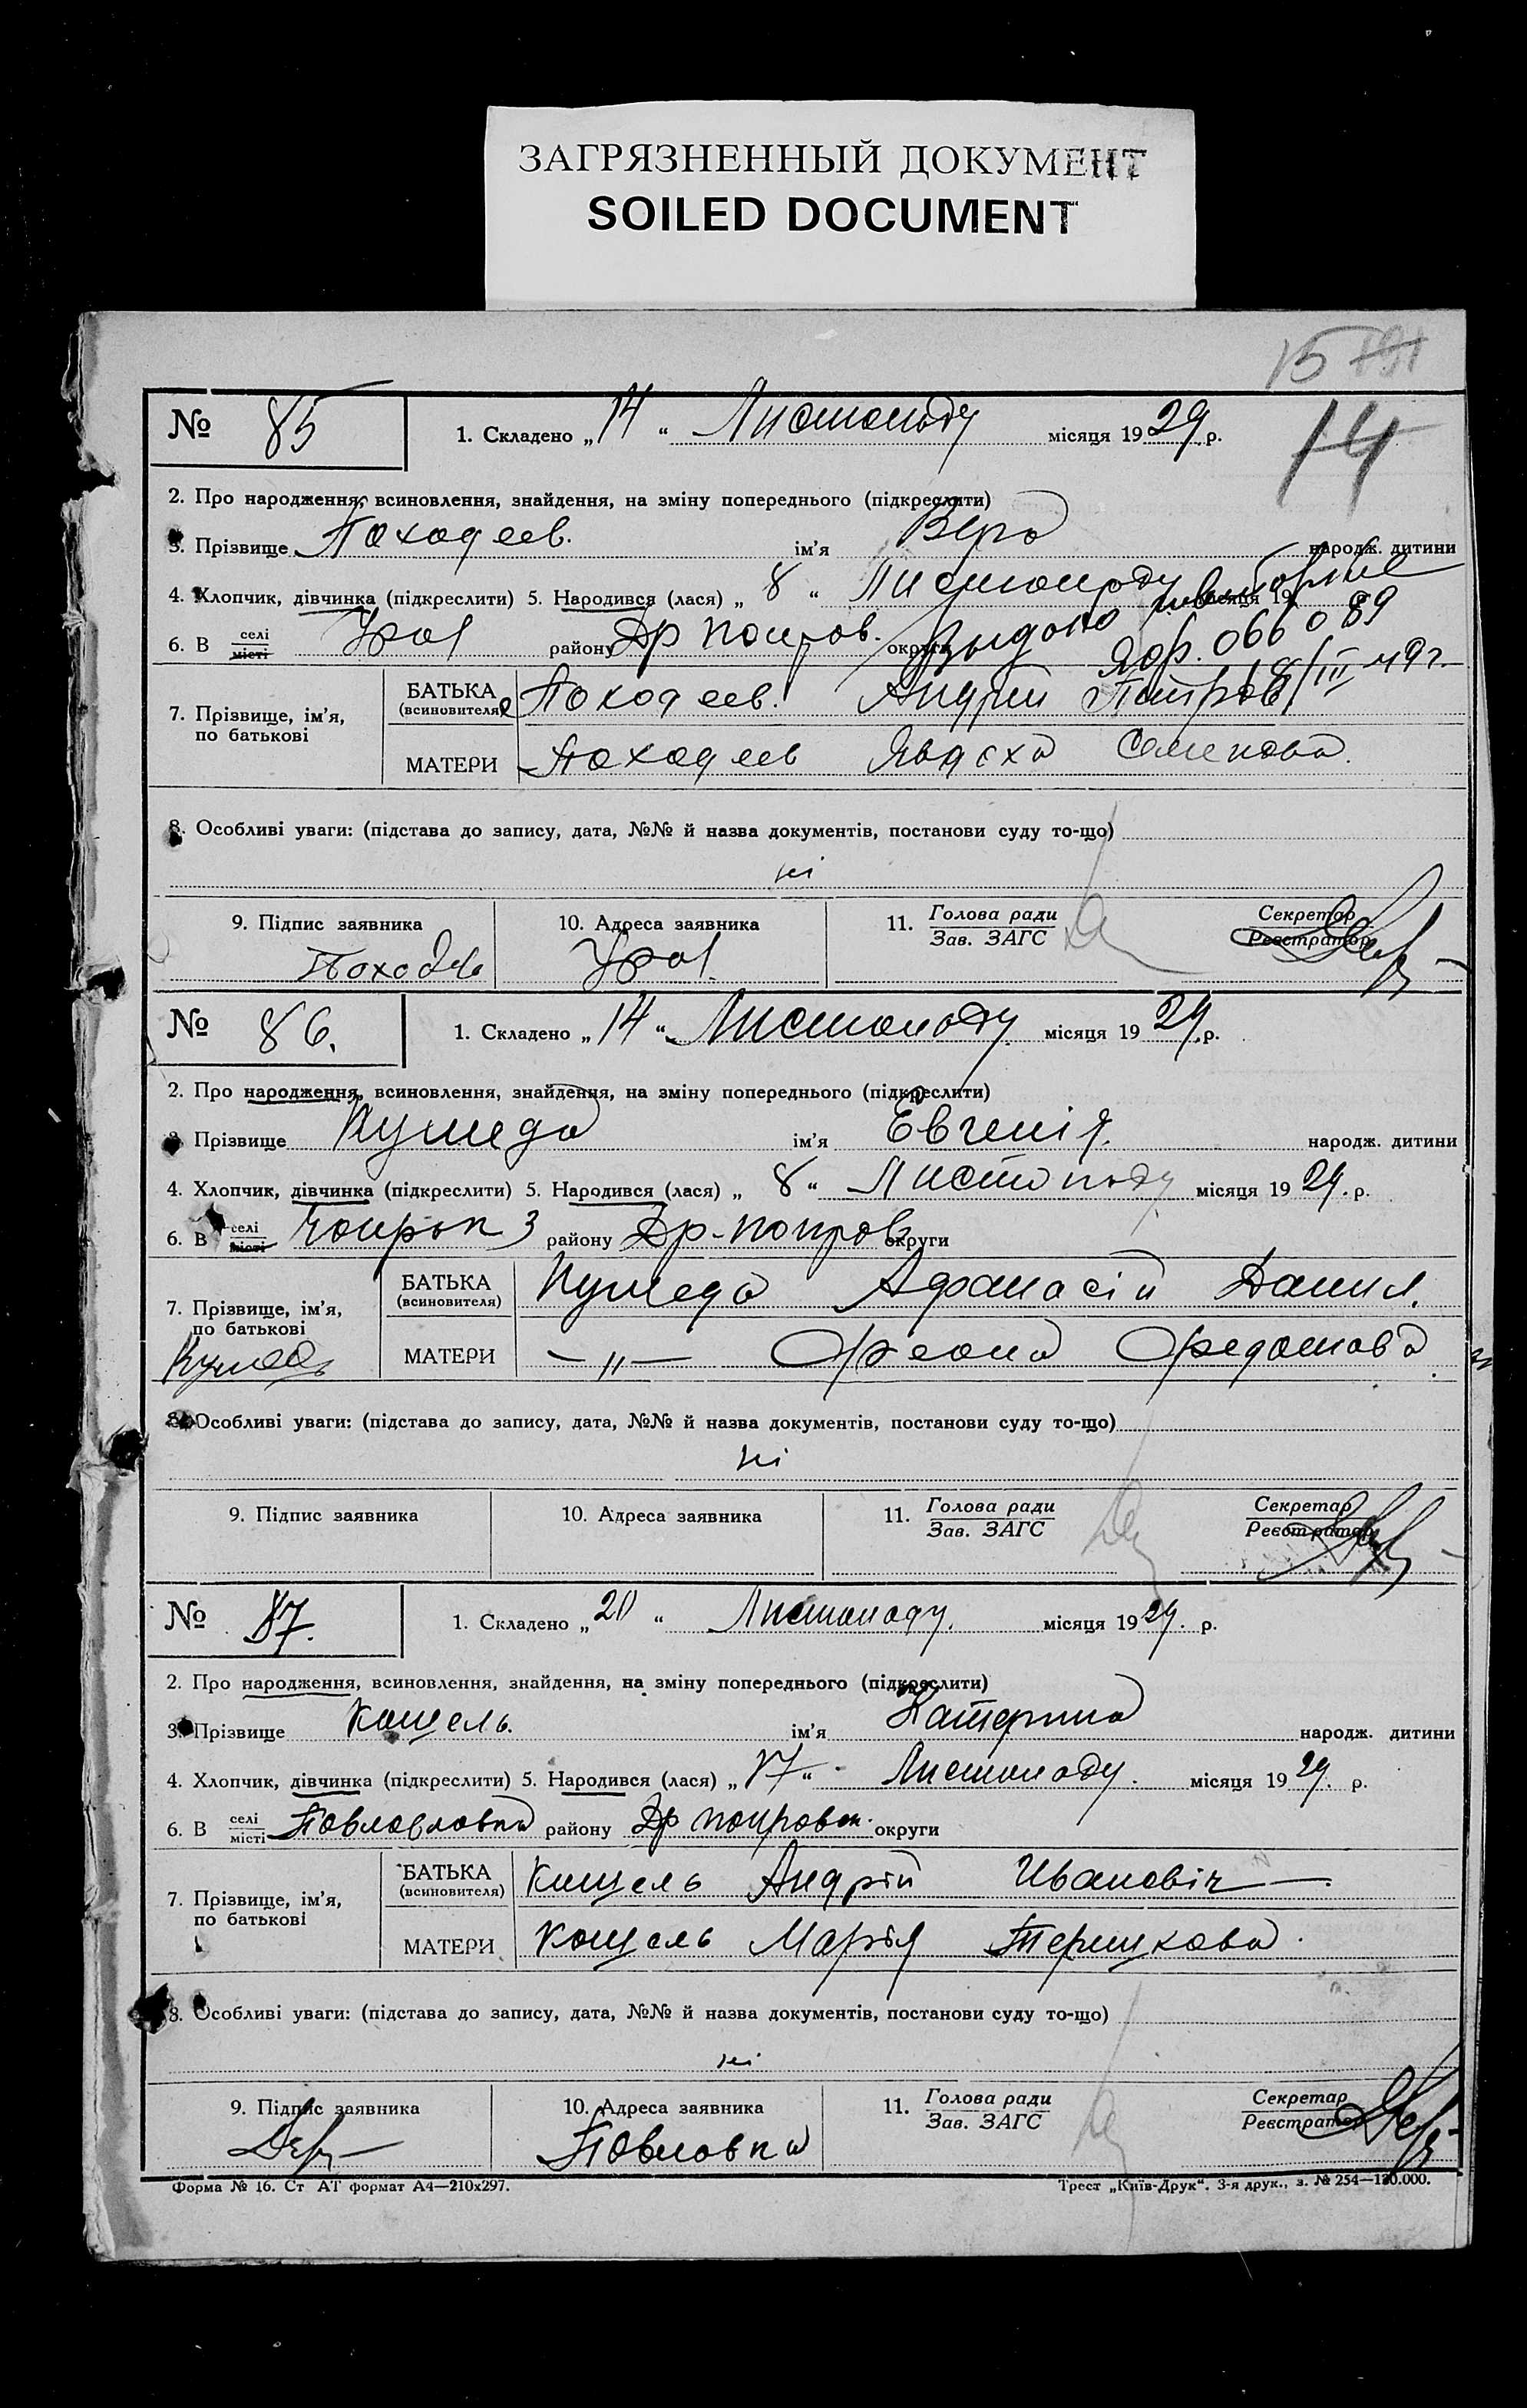 ЗАГРЯЗНЕННЫЙ ДОКУМЕНТ
SOILED DOCUMENT
15
14
№ 85
1. Складено „14“ Листопаду місяця 1929 р.
2. Про народження, всиновлення, знайдення, на зміну попереднього (підкреслити)
3. Прізвище Походеев. ім’я Вера народж. дитини
4. Хлопчик, дівчинка (підкреслити) 5. Народився (лася) „8“ Листопаду місяця 19
6. В селі місті району Др покров. округи
Видано повторне
066089
/III 49 г.
7. Прізвище, ім’я, по батькові
БАТЬКА (всиновителя) Походеев. Андрій Петров
МАТЕРИ Походеев Явдоха Семенова.
8. Особливі уваги: (підстава до запису, дата, №№ й назва документів, постанови суду то-що)
ні
9. Підпис заявника 10. Адреса заявника 11. Голова ради Зав. ЗАГС Секретар Реєстратор
№ 86.
1. Складено „14“ Листопаду місяця 1929 р.
2. Про народження, всиновлення, знайдення, на зміну попереднього (підкреслити)
3. Прізвище Кумеда ім’я Евгенія народж. дитини
4. Хлопчик, дівчинка (підкреслити) 5. Народився (лася) „8“ Листопаду місяця 1929. р.
6. В селі місті району Др-покров округи
7. Прізвище, ім’я, по батькові
БАТЬКА (всиновителя) Кумеда Афанасій Данил.
МАТЕРИ —„— Феона Федотова
8. Особливі уваги: (підстава до запису, дата, №№ й назва документів, постанови суду то-що)
ні
9. Підпис заявника 10. Адреса заявника 11. Голова ради Зав. ЗАГС Секретар Реєстратор
№ 87.
1. Складено „20“ Листопаду. місяця 1929. р.
2. Про народження, всиновлення, знайдення, на зміну попереднього (підкреслити)
3. Прізвище Кошель. ім’я Катерина народж. дитини
4. Хлопчик, дівчинка (підкреслити) 5. Народився (лася) „17“ Листопаду. місяця 1929. р.
6. В селі місті району Др покровск. округи
7. Прізвище, ім’я, по батькові
БАТЬКА (всиновителя) Кошель Андрій Івановіч
МАТЕРИ Кошель Марія
8. Особливі уваги: (підстава до запису, дата, №№ й назва документів, постанови суду то-що)
ні
9. Підпис заявника 10. Адреса заявника 11. Голова ради Зав. ЗАГС Секретар Реєстратор
Павловка
Форма № 16. Ст АТ формат А4—210х297. Трест „Київ-Друк“. 3-я друк., з. № 254—130.000.